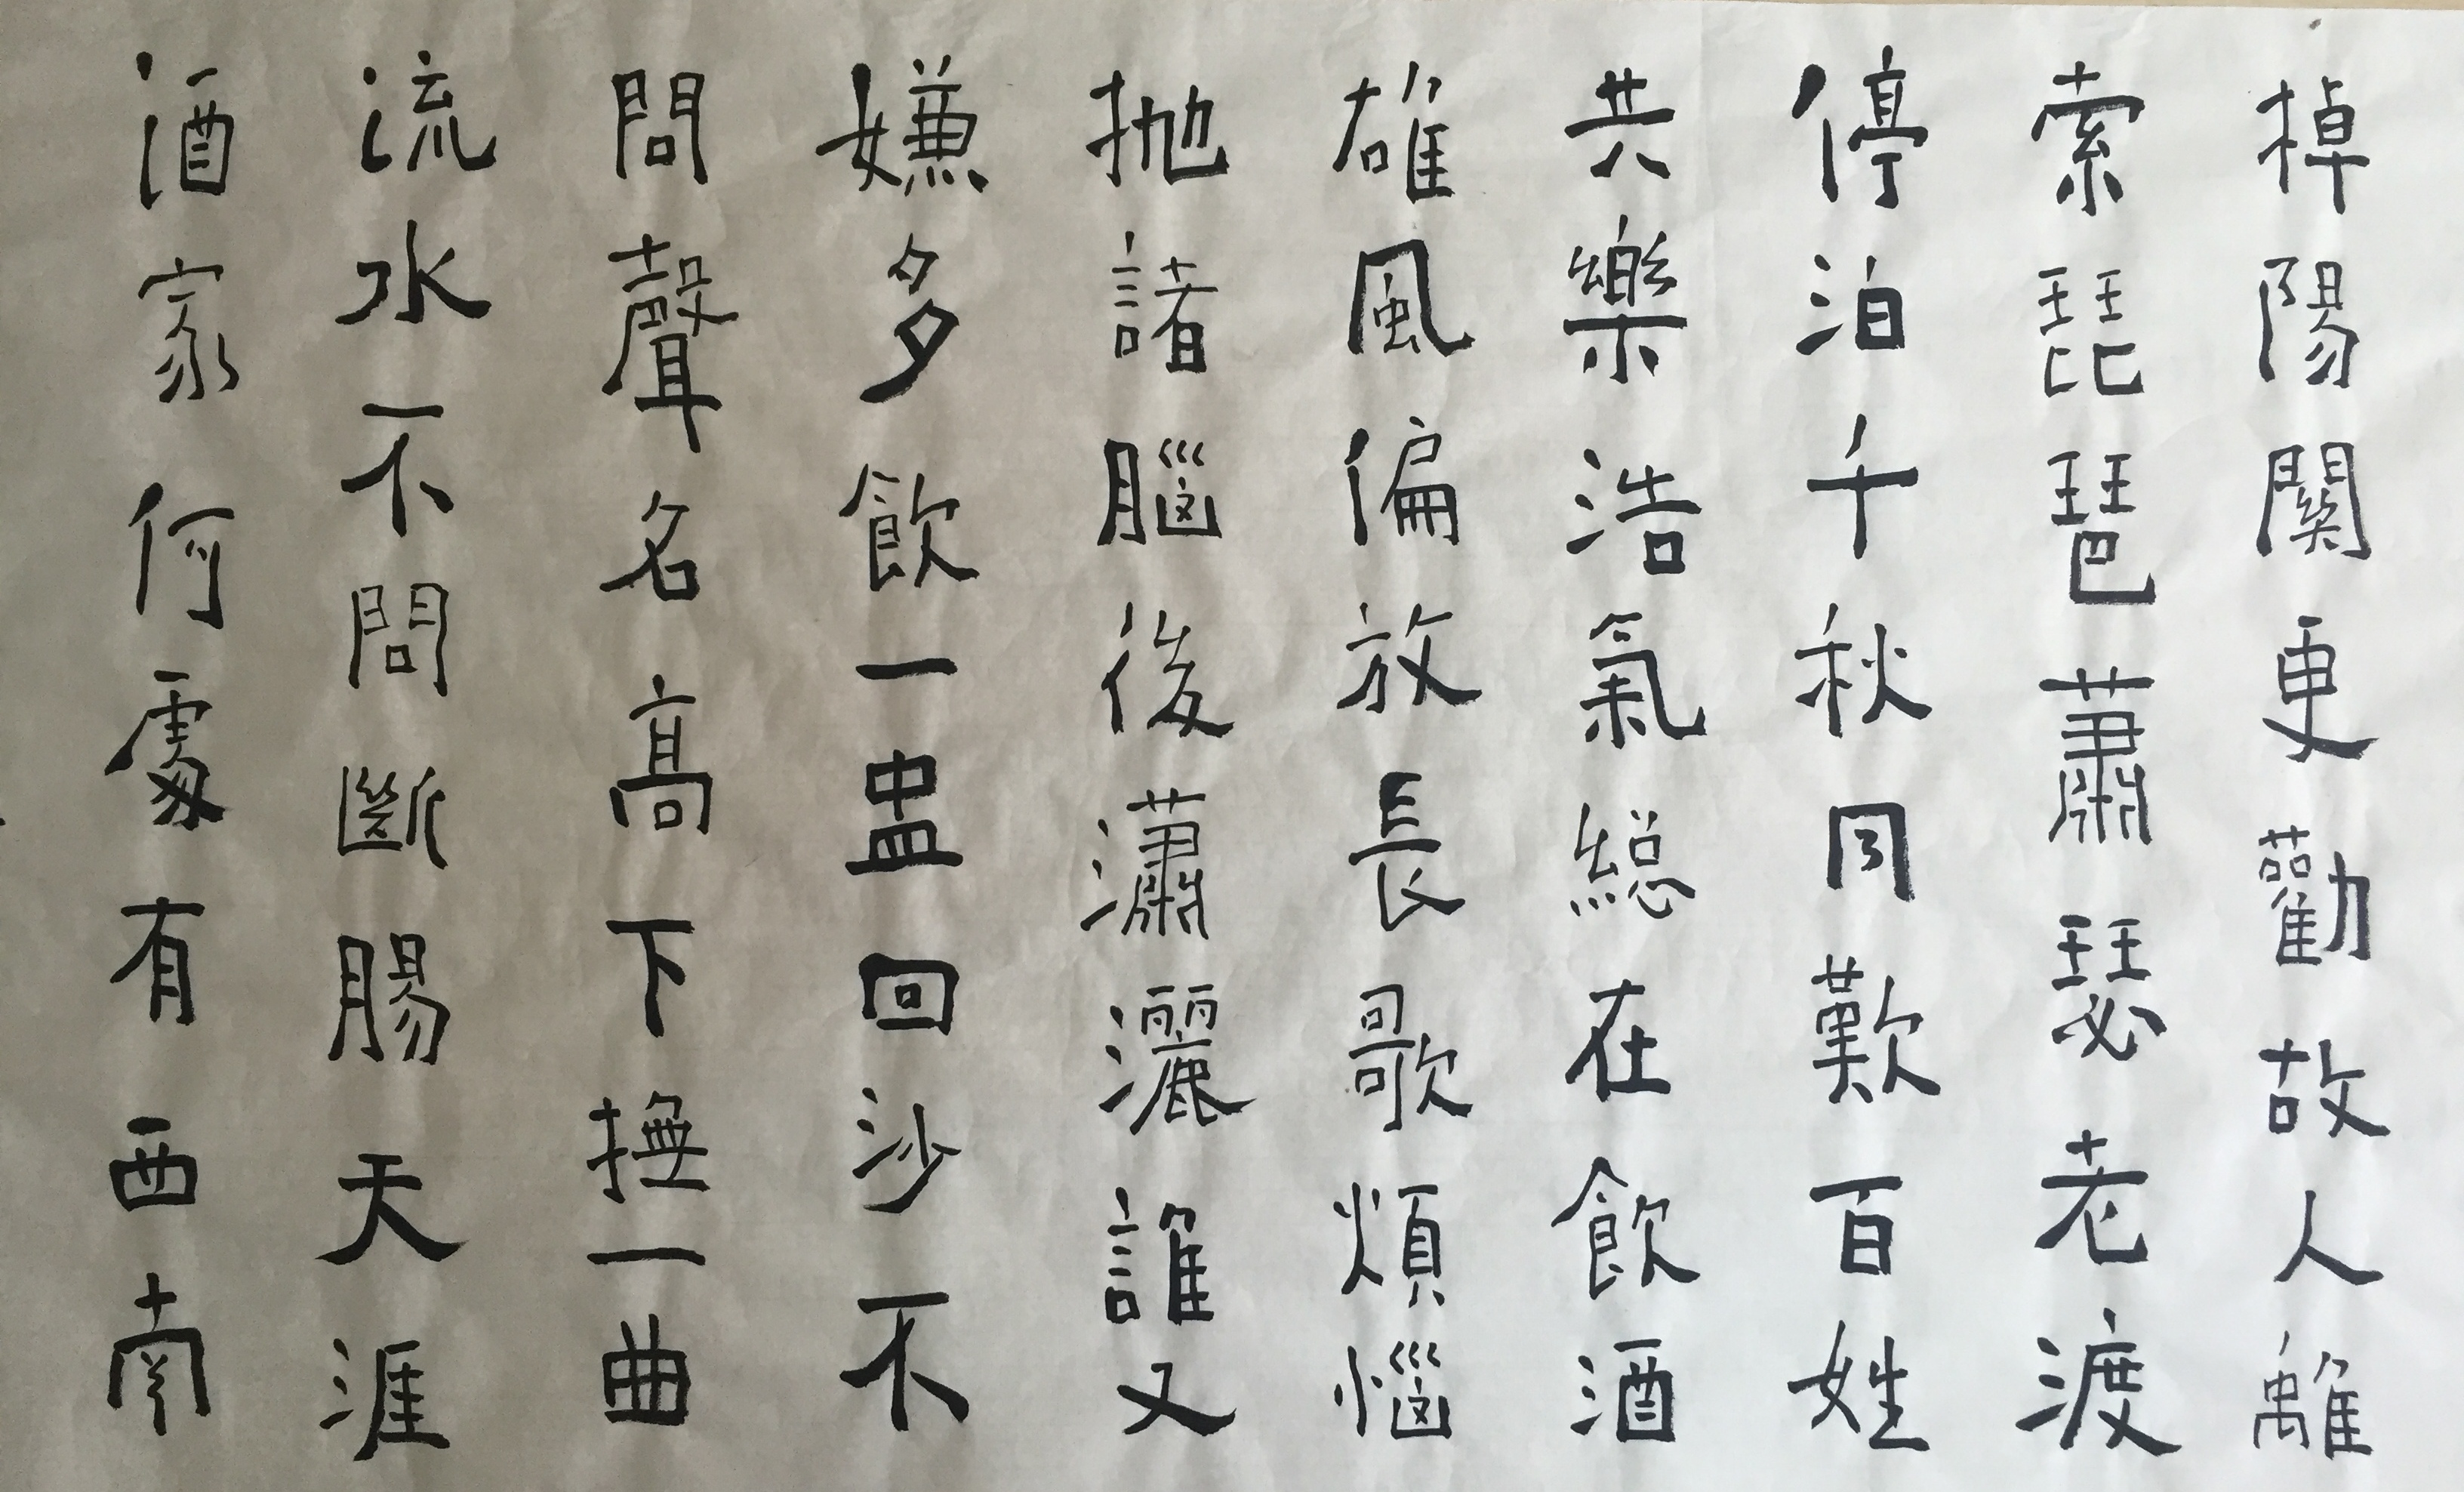 棹陽關更勸故人離
索琵琶蕭瑟老渡
停泊千秋同歎百姓
共樂浩氣總在飲酒
雄風偏放長歌煩惱
拋諸腦後瀟灑誰又
嫌多飲一盅回沙不
問聲名高下撫一曲
流水不問斷腸天涯
酒家何處有西南